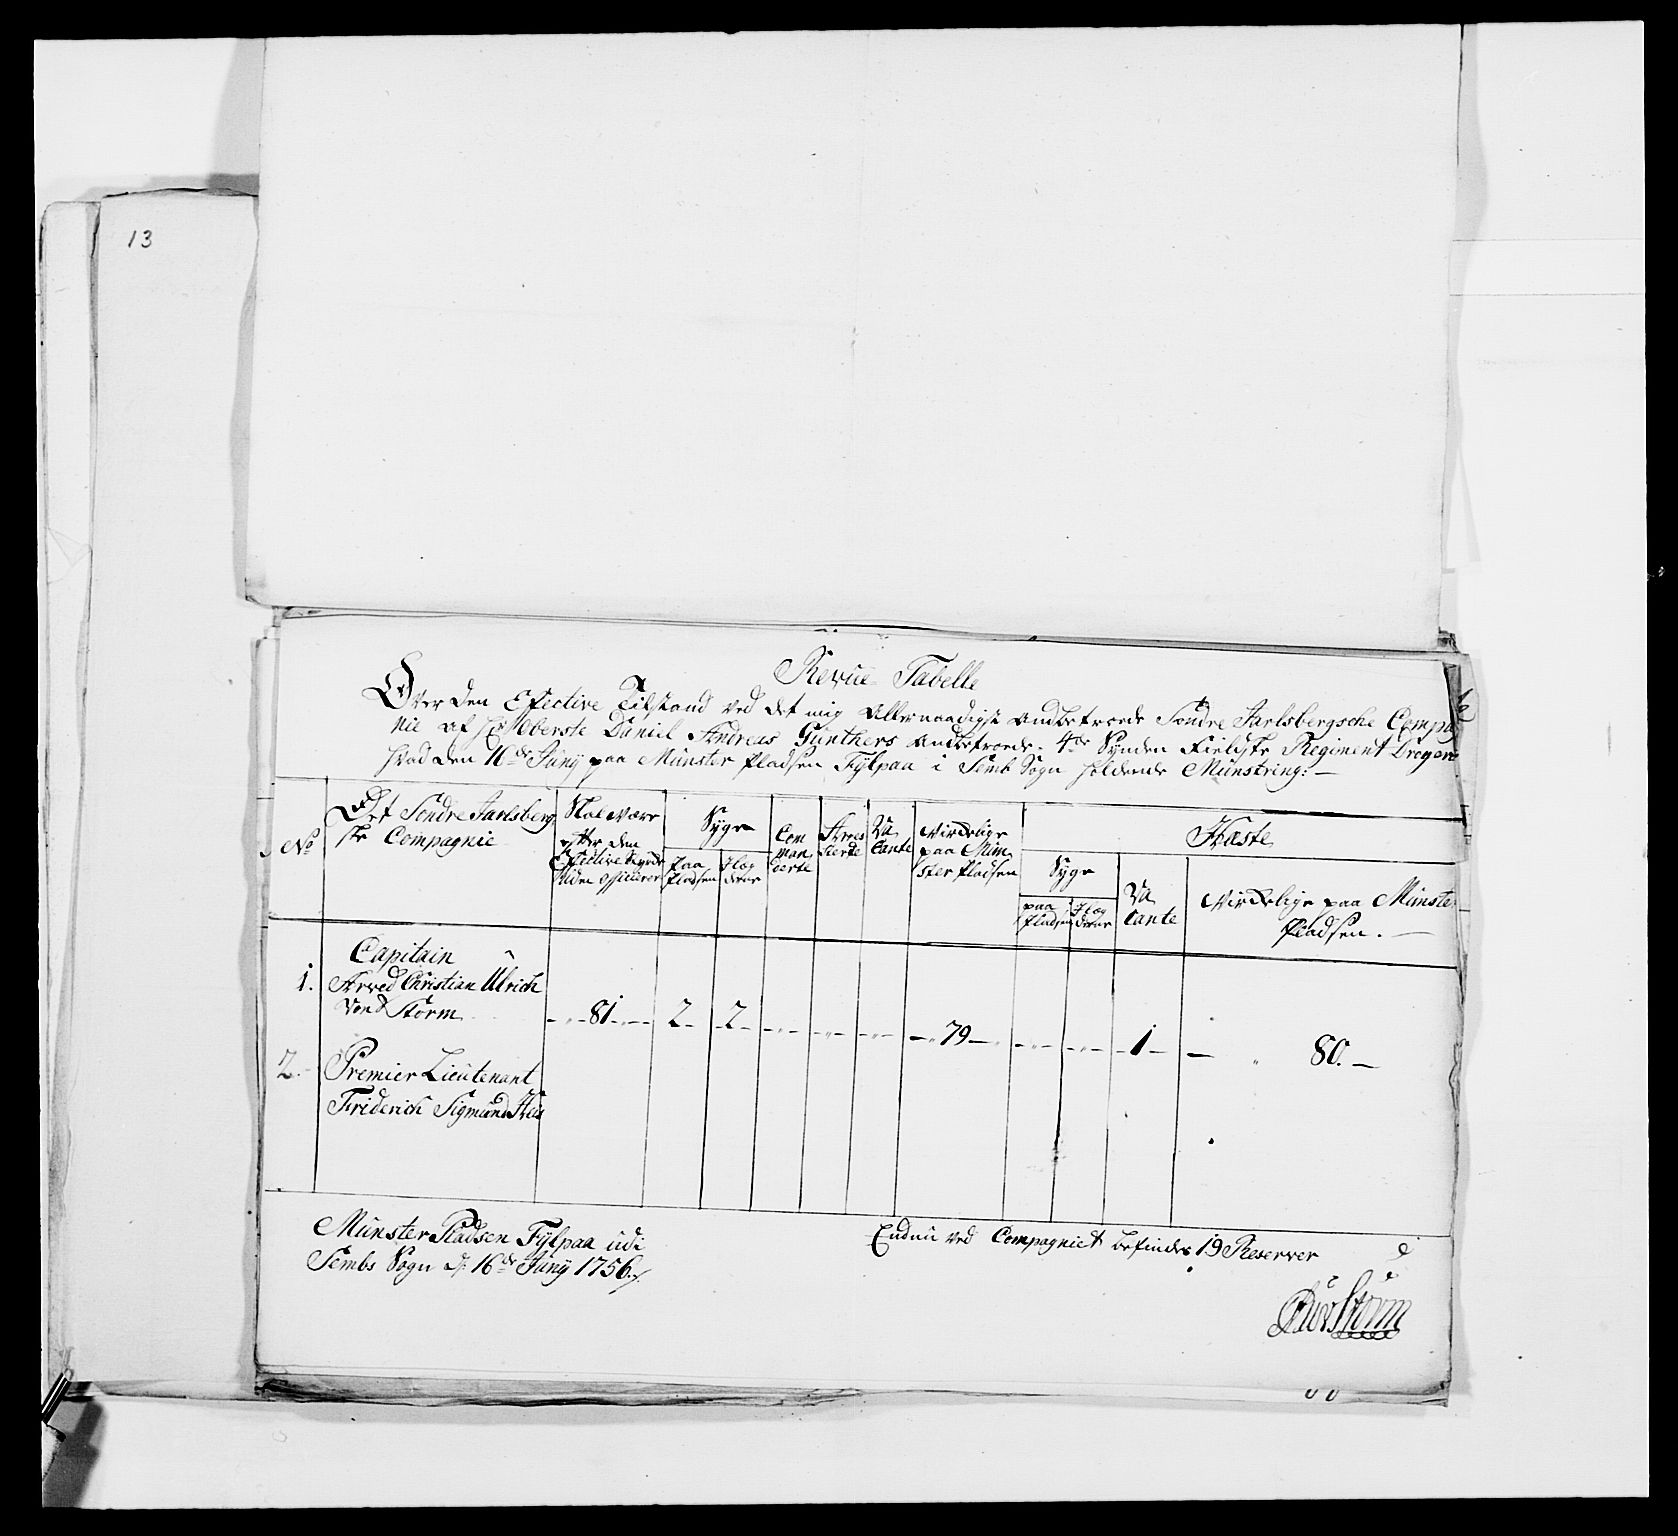 13
Revue Tabelle
Over den Effective Tilstand ved det mig Allernaadigst Andbetroede Sondre Jarlsbergsche Compag
nie af Hr Oberste Daniel Andreas Günthers Andbetroede 4de Synden Fieldske Regiment Dragon
hvad den 16de Juny paa Münster Pladsen Fÿlpaa i Semb Sogn holdende Münstring:
No
Det Sondre Jarlsberg
ske Compagnie
Nærværr
efter den
Effective Styrke
uden officerer
Syge
Paa Pladsen
Com
man
derte
Arre
sterte
Va
cante
Virkelige
paa Mün
ster Pladsen
Hæste
Syge
paa
Pladsen
Va
cante
Virkelige paa Münster
Pladsen.
1.
Capitain
Arved Christian Ulrich
Vond Storm
81
2
2
79
1
80.
2.
Premier Lieutenant
Friderich Sigmund
Münster Pladsen Fÿlpaa udi
Sembs Sogn d: 16de Junÿ 1756.
Endnu ved Compagniet befindes 19 Reserver
Storm